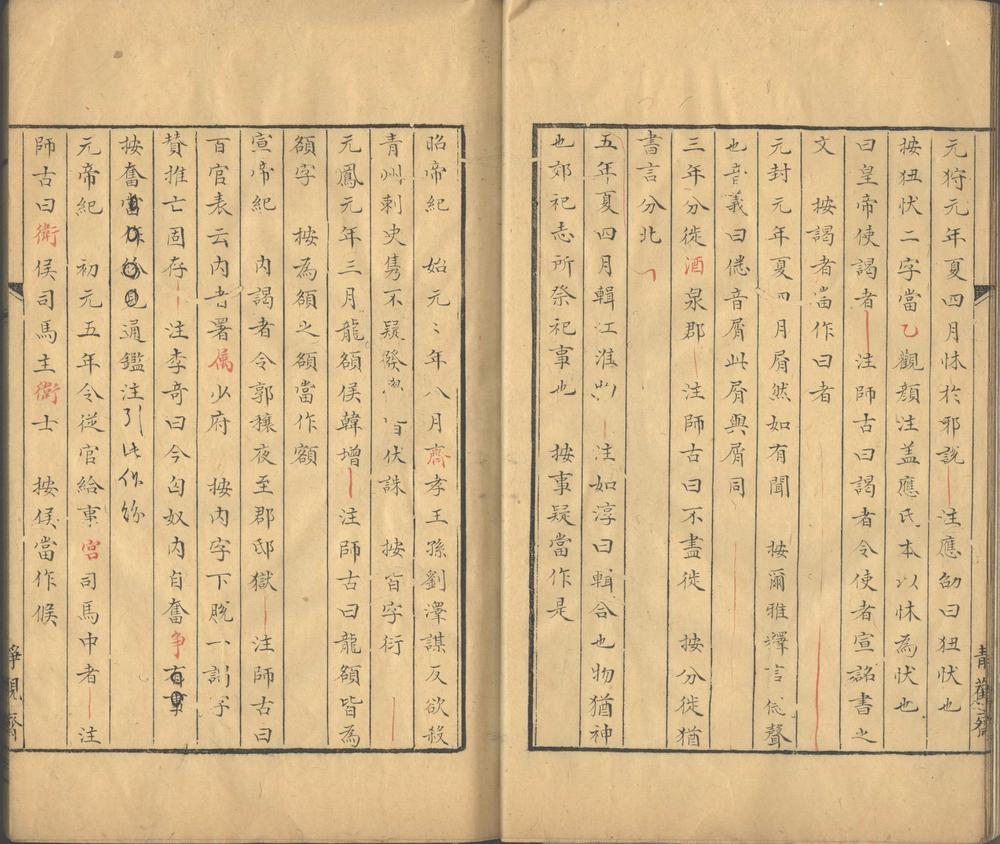 元狩元年夏四月怵於邪說 注應劭曰狃伏也
按狃伏二字當乙觀顏注盖應氏本以怵為伏也
曰皇帝使謁者 注師古曰謁者令使者宣詔書之
文 按謁者當作曰者
元封元年夏四月屑然如有聞 按爾雅釋言 聲
也音義曰僁音屑此屑與屑同
三年分徙酒泉郡 注師古曰不盡徙 按分徙猶
書言分北
五年夏四月輯江淮 注如淳曰輯合也物猶神
也郊祀志所祭祀事也 按事疑當作是
昭帝紀 始元元年八月齊孝王孫劉澤謀反欲殺
青州刺史雋不疑發 皆伏誅 按皆字衍
元鳳元年三月龍頟侯韓增 注師古曰龍頟皆為
頟字 按為頟之頟當作額
宣帝紀 內謁者令郭穰夜至郡邸獄 注師古曰
百官表云內者署属少府 按內字下脫一謁字
賛推亡固存 注李奇曰今匈奴內自奮争
按奮 通鑑注引此作紛
元帝紀 初元五年令從官給事宮司馬中者 注
師古曰衛侯司馬主衛士 按侯當作候
靜觀齋